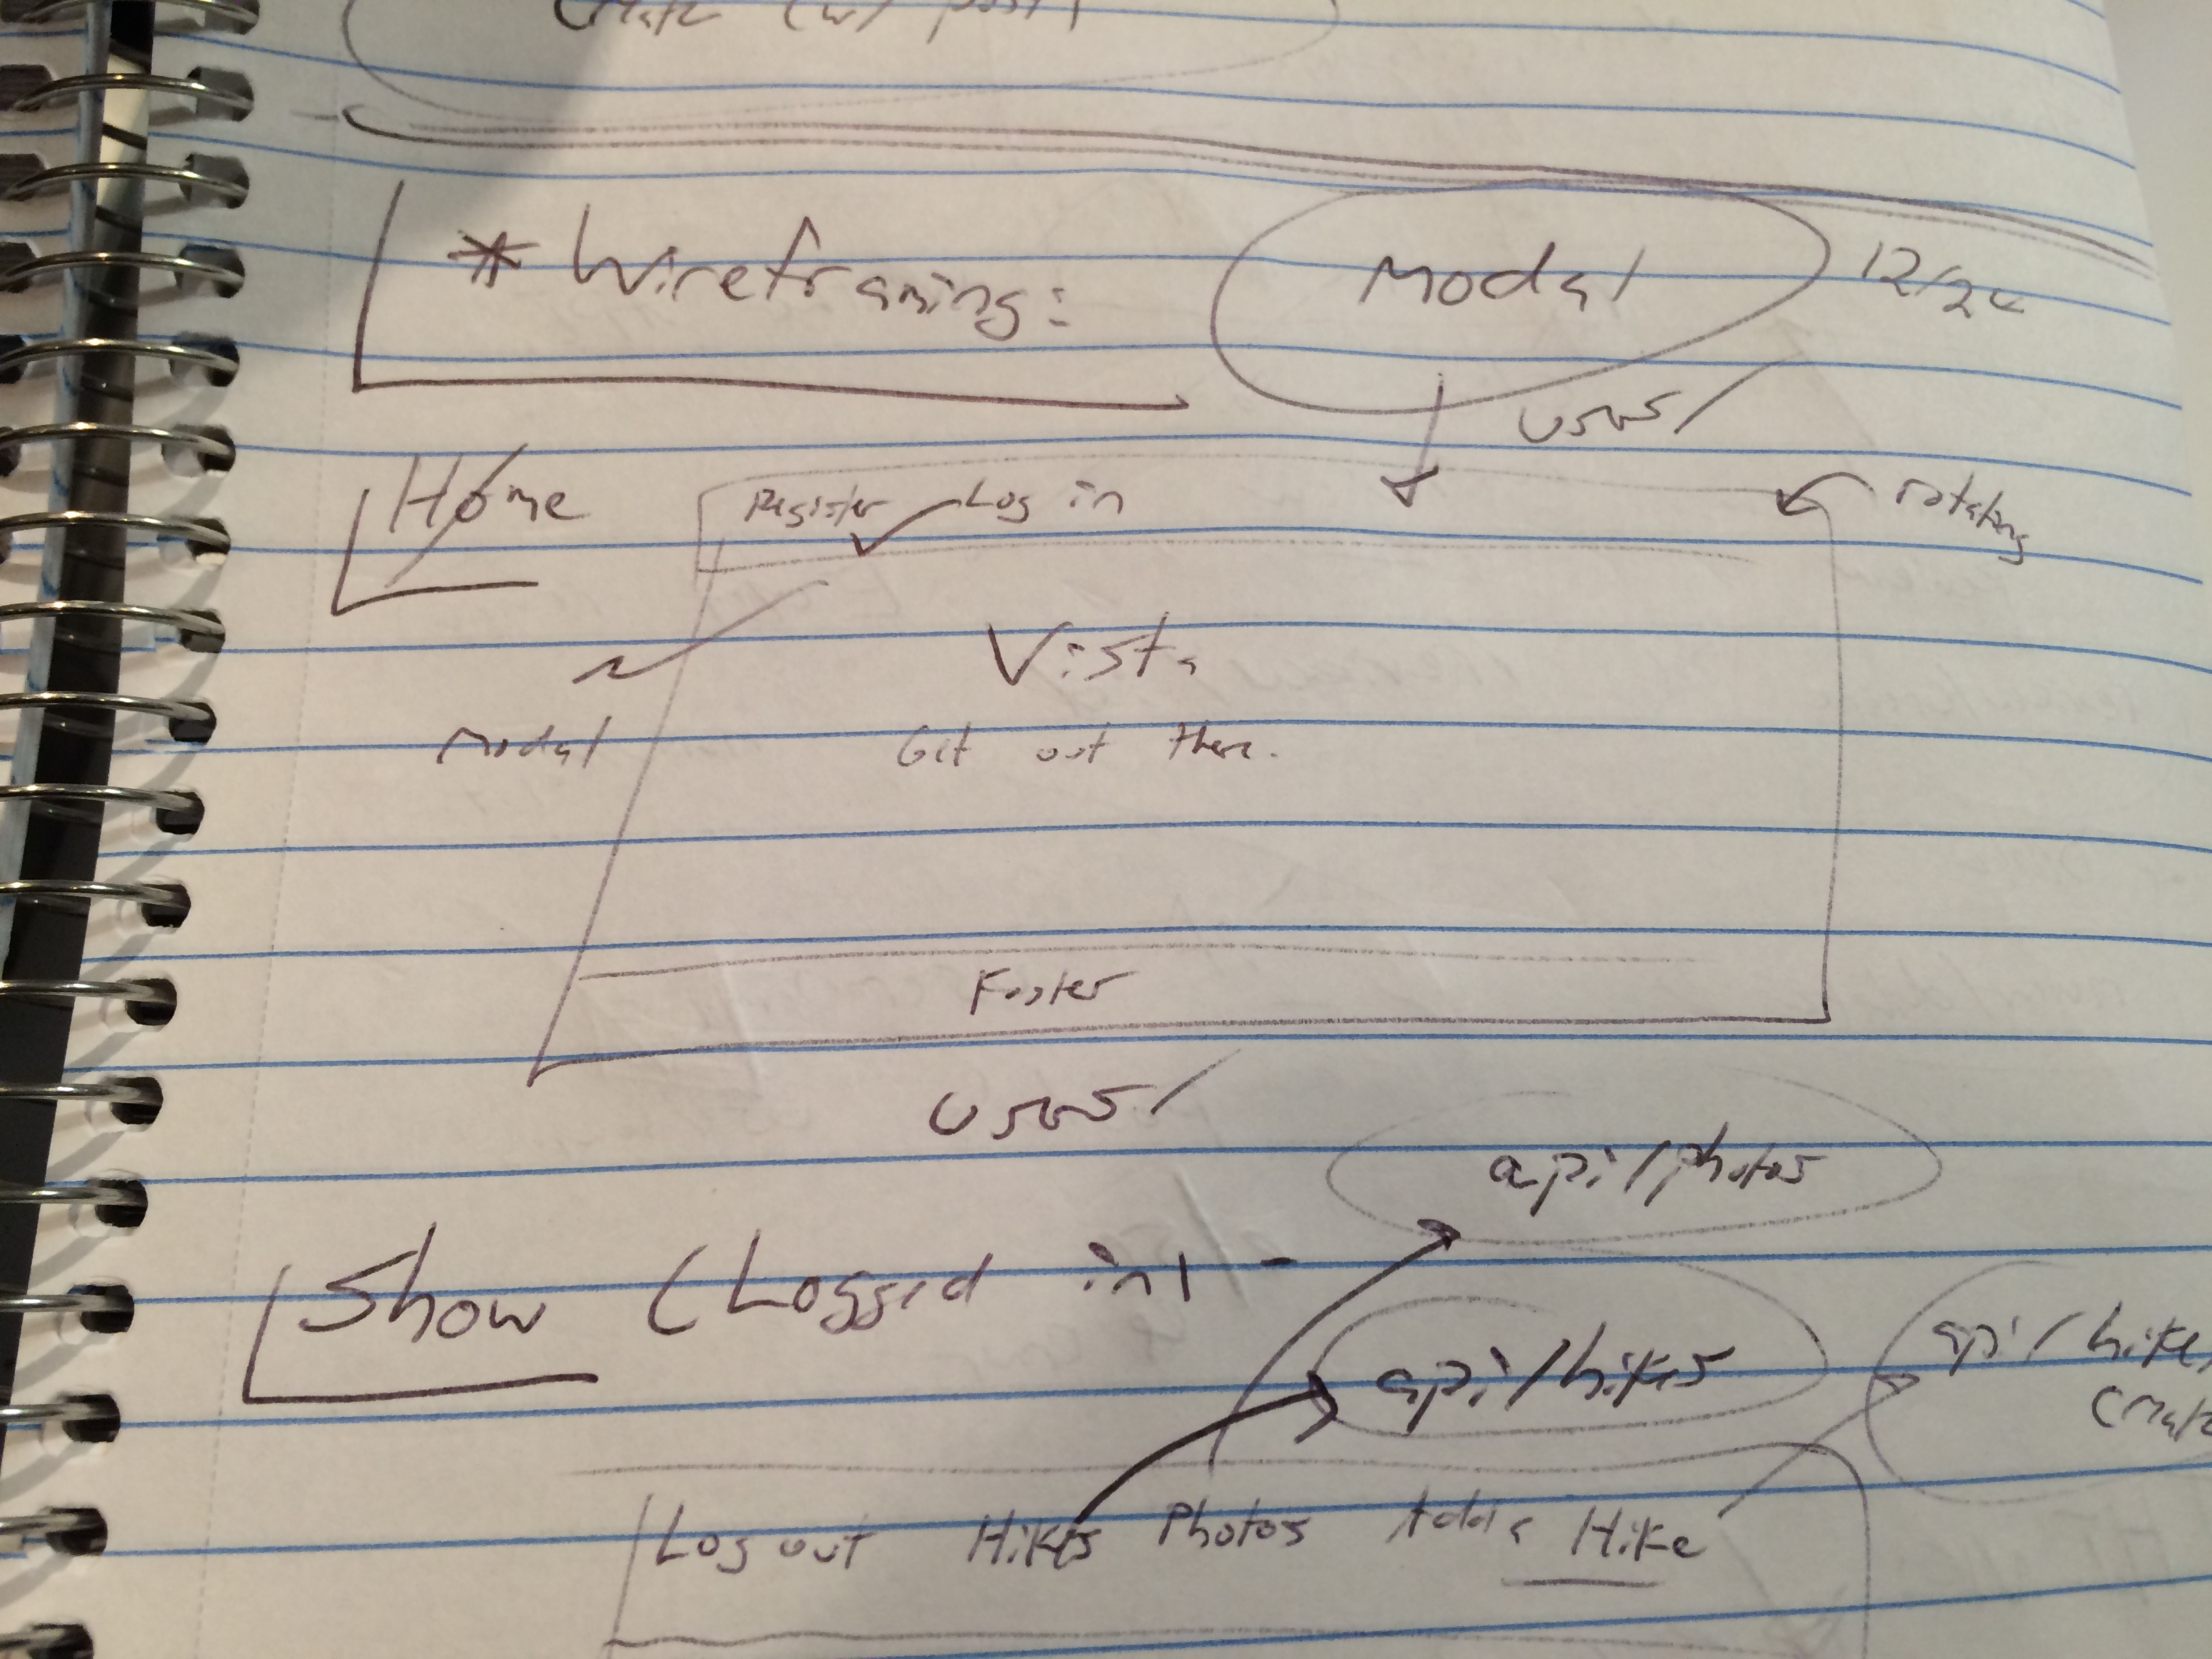 (w/ post)
* Wireframing:
Modal
12/24
users/
Home
Register
Log in
rotating
Vista
Modal
Get out there.
Footer
users/
api/photos
Show (Logged in) -
api/hikes
api/hikes
create
Logout Hikes Photos Add a Hike